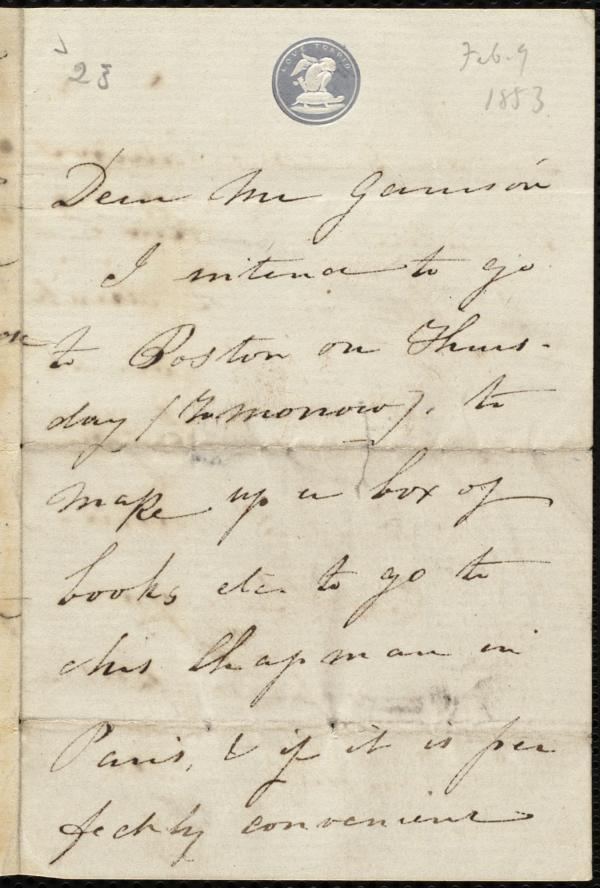 23
Feb. 9
1853
Dear Mr Garrison
I intend to go
to Boston on Thurs-
day (tomorrow), to
make up a box of
books etc. to go to
Mrs Chapman in
Paris, & if it is per
fectly convenient